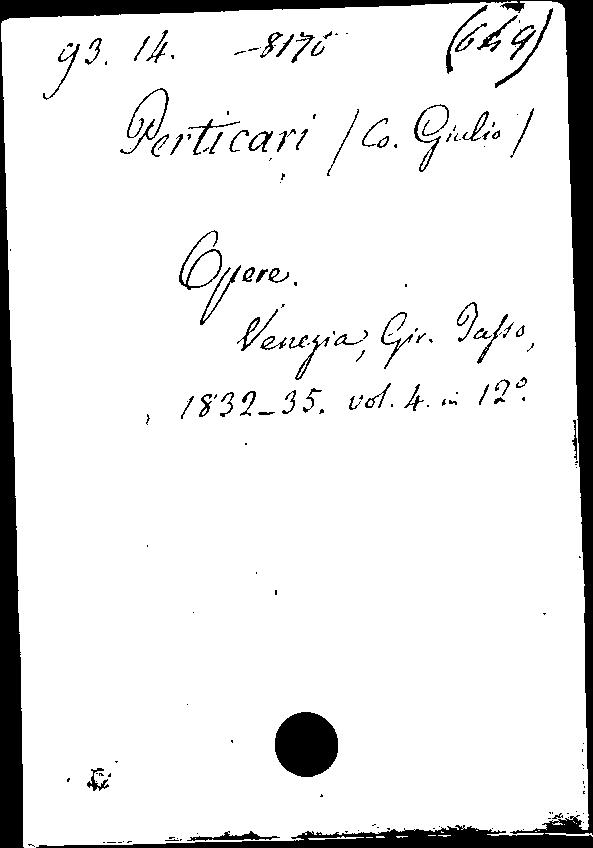 93. 14. -8170
Perticari / Co. Giulio /
Opere.
Venezia, Gir. Tasso,
1832-35. vol. 4. in 12º.